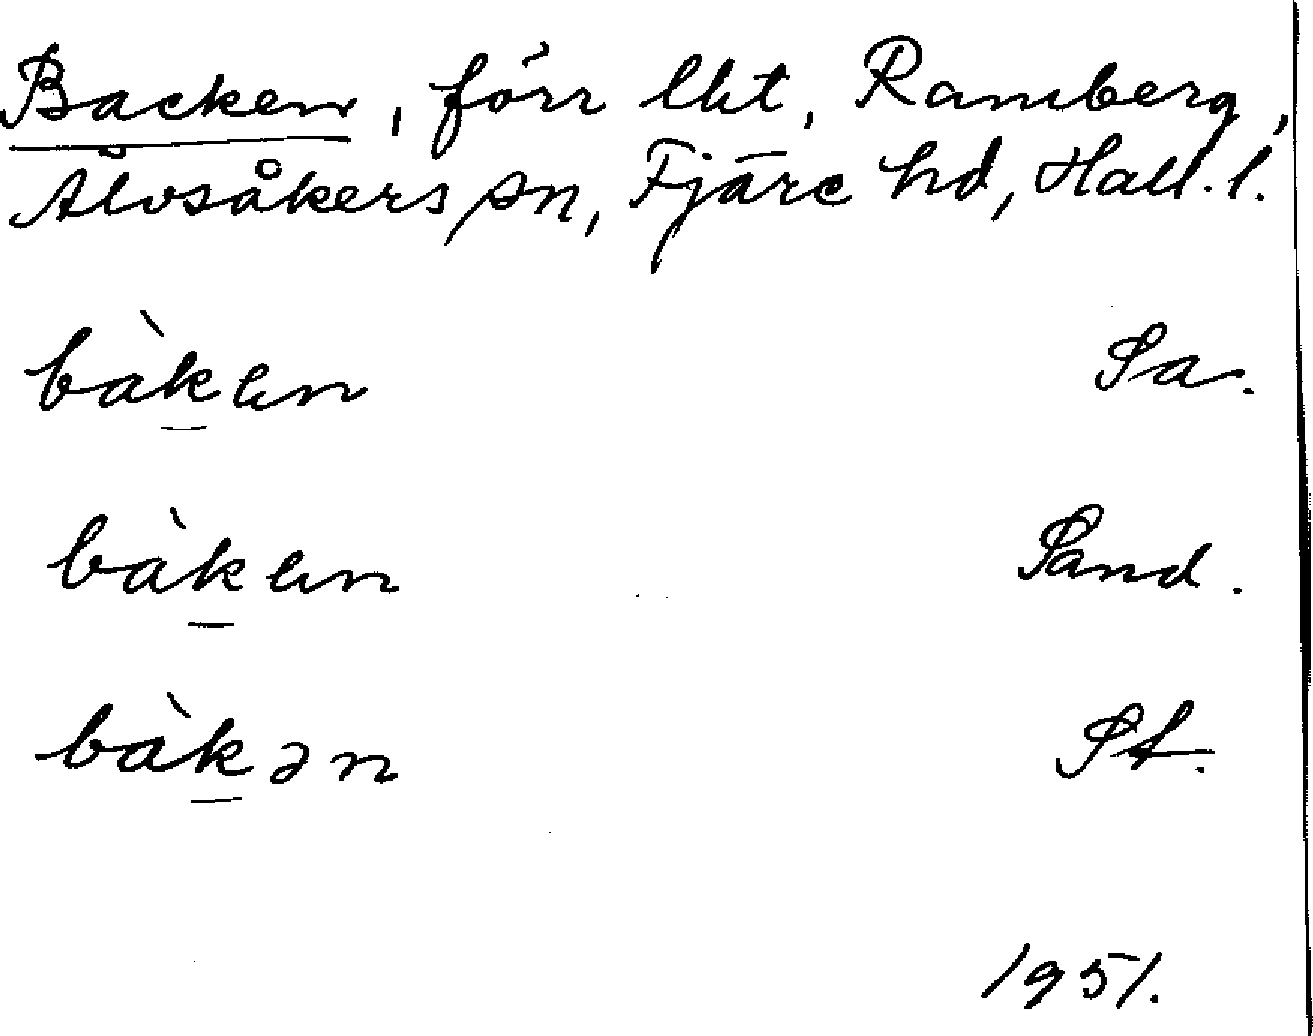 Backen, förr lht, Ramberg,
Älvsåkers sn, Fjäre hd, Hall. l.
bàkɐn Sa.
bàkɐn Sand.
bàkən St.
1951.